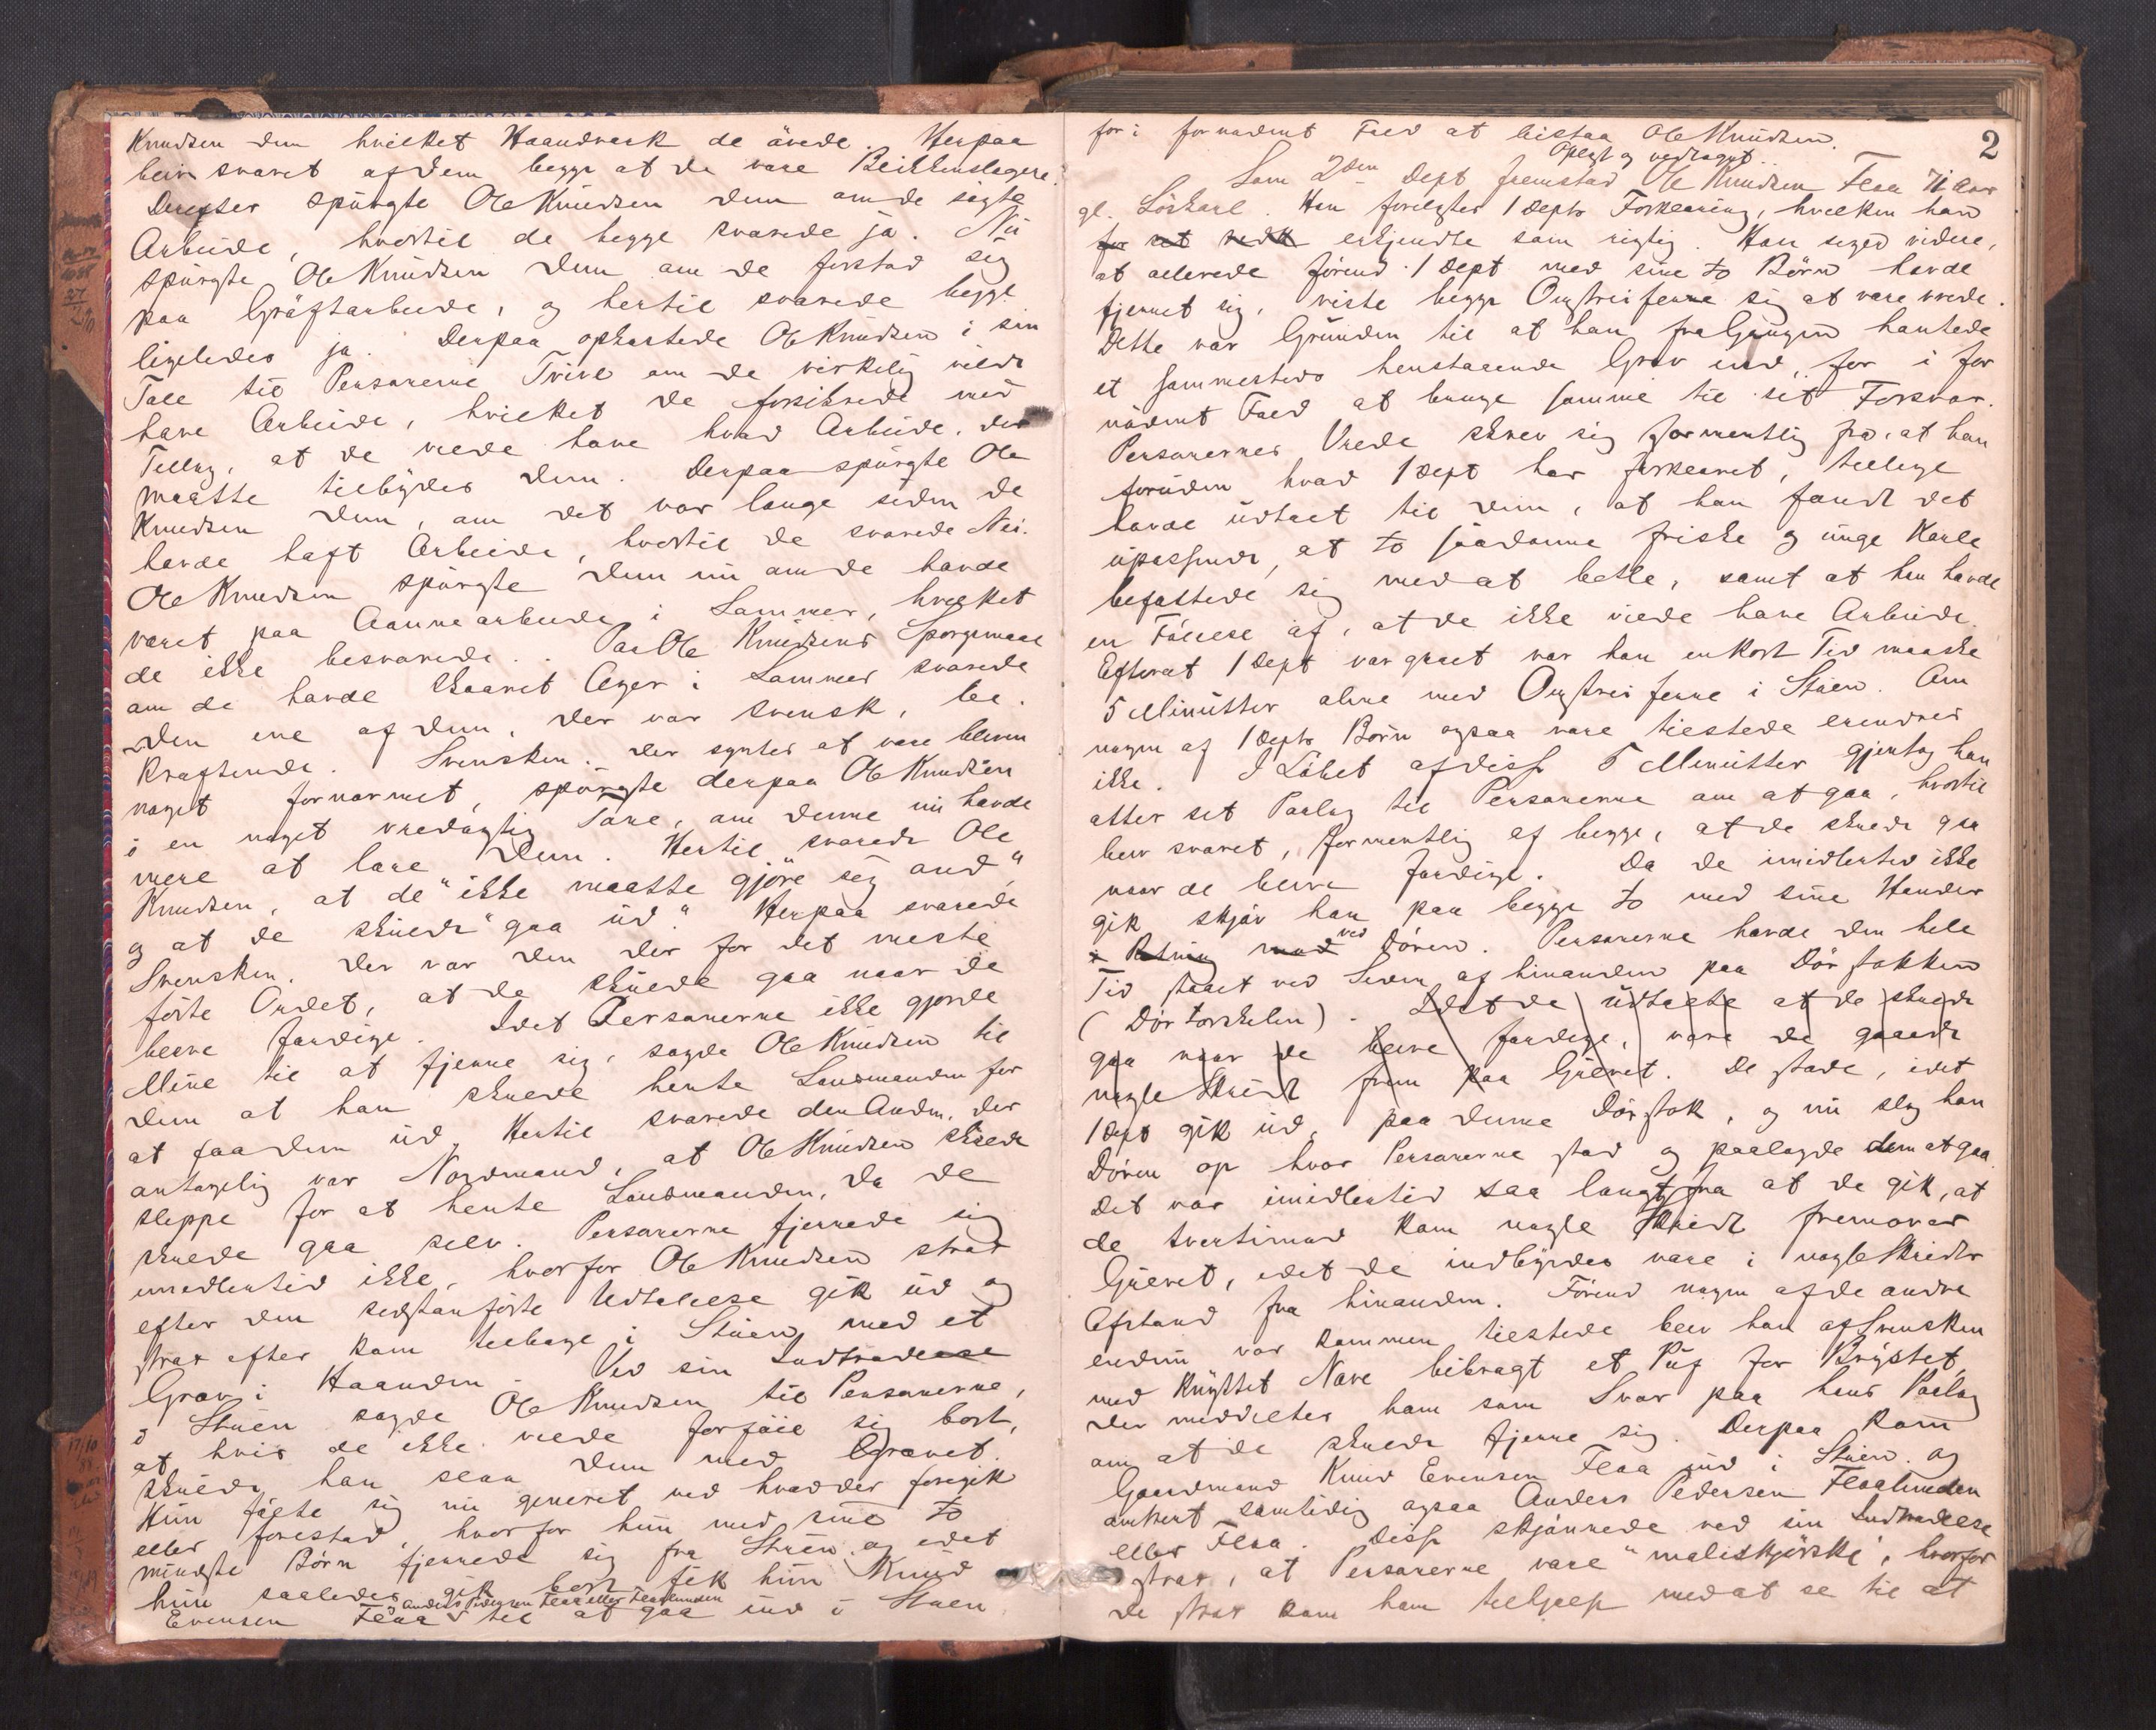 Knudsen dem hvilket Haandværk de øvede. Herpaa
blev svaret af dem begge at de vare Blikkenslagere.
Derefter spurgte Ole Knudsen dem om de søgte
Arbeide, hvortil de begge svarede ja. Nu
spurgte Ole Knudsen dem om de forstod sig
paa Grøftarbeide, og hertil svarede begge
ligeledes ja. Derpaa opkastede Ole Knudsen i sin
Tale til Personerne Tvivl om de virkelig vilde
have Arbeide, hvilket de forsikrede med
Tillæg, at de vilde have hvad Arbeide, der
maatte tilbydes dem. Derpaa spurgte Ole
Knudsen dem, om det var længe siden de
havde haft Arbeide, hvortil de svarede Nei.
Ole Knudsen spurgte dem nu om de havde
været paa Aannearbeide i Sommer, hvilket
de ikke besvarede. Paa Ole Knudsens Spørgsmaal
om de havde skaaret Ager i Sommer svarede
den ene af dem, der var svensk, be-
kræftende. Svensken, der syntes at være bleven
noget fornærmet, spurgte derpaa Ole Knudsen
i en noget vredagtig Tone, om denne nu havde
mere at lære dem. Hertil svarede Ole
Knudsen, at de "ikke maatte gjøre sig ond"
og at de skulde "gaa ud." Herpaa svarede
Svensken, der var den der for det meste
førte Ordet, at de skulde gaa naar de
bleve færdige. Idet Personerne ikke gjorde
Mine til at fjerne sig, sagde Ole Knudsen til
dem at han skulde hente Lensmanden for
at faa dem ud. Hertil svarede den Anden, der
antagelig var Nordmand, at Ole Knudsen skulde
slippe for at hente Lensmanden, da de
skulde gaa selv. Personerne fjernede sig
imidlertid ikke, hvorfor Ole Knudsen strax
efter den sidstanførte Udtalelse gik ud og
strax efter kom tilbage i Stuen med et
Grev i Haanden. Ved sin Indtrædelse
i Stuen sagde Ole Knudsen til Personerne,
at hvis de ikke vilde forføie sig bort,
skulde han slaa dem med Grevet.
Hun følte sig nu generet ved hvad der foregik
eller forestod, hvorfor hun med sine to
mindste Børn fjernede sig fra Stuen og idet
hun saaledes gik bort, fik hun Knud
Anders Pedersen Flaa eller Flaalunden
Evensen Flaa til at gaa ind i Stuen
2
for i fornødent Fald at bistaa Ole Knudsen.
Oplyst og vedtaget
Som 2den Dept fremstod Ole Knudsen Flaa 71 Aar
gl. Løskarl. Han forelagdes 1 Depts Forklaring, hvilken han
erkjendte som rigtig. Han siger videre,
at allerede førend 1 Dept med sine to Børn havde
fjernet sig, viste begge Omstreiferne sig at være vrede.
Dette var Grunden til at han fra Gangen hentede
et sammesteds henstaaende Grev ind, for i for
nødent Fald at bruge samme til sit Forsvar.
Personernes Vrede skrev sig formentlig fra, at han
foruden hvad 1 Dept har forklaret, tillige
havde udtalt til dem, at han fandt det
upassende, at to saadanne friske og unge Karle
befattede sig med at betle, samt at han havde
en Følelse af, at de ikke vilde have Arbeide.
Efterat 1 Dept var gaaet var han en kort Tid maaske
5 Minutter alene med Omstreiferne i Stuen. Om
nogen af 1 Depts Børn ogsaa vare tilstede erindres
ikke. I Løbet af disse 5 Minutter gjentog han
atter sit Paalæg til Personerne om at gaa, hvortil
blev svaret, formentlig af begge, at de skulde gaa
naar de bleve færdige. Da de imidlertid ikke
gik skjøv han paa begge to med sine Hænder
i Retning mod ved Døren. Personerne havde den hele
Tid staaet ved Siden af hinanden paa Dørstokken
(Dørtærskelen). Idet de udtalte at de skulde
gaa naar de bleve færdige, vare de gaaede
nogle Skridt frem paa Gulvet. De stode, idet
1 Dept gik ud, paa denne Dørstok, og nu slog han
Døren op hvor Personerne stod og paalagde dem at gaa.
Det var imidlertid saa langt fra at de gik, at
de tvertimod kom nogle Skridt fremover
Gulvet, idet de indbyrdes vare i nogle Skridts
Afstand fra hinanden. Førend nogen af de andre
endnu var kommen tilstede blev han af Svensken
med knyttet Næve bibragt et Puf for Brystet,
der meddeltes ham som Svar paa hans Paalæg
om at de skulde fjerne sig. Derpaa kom
Gaardmand Knud Evensen Flaa ind i Stuen og
omtrent samtidig ogsaa Anders Pedersen Flaalunden
eller Flaa. Disse skjønnede ved sin Indtrædelse
strax, at Personerne vare "maliskjørske", hvorfor
de strax kom ham tilhjælp med at se til at